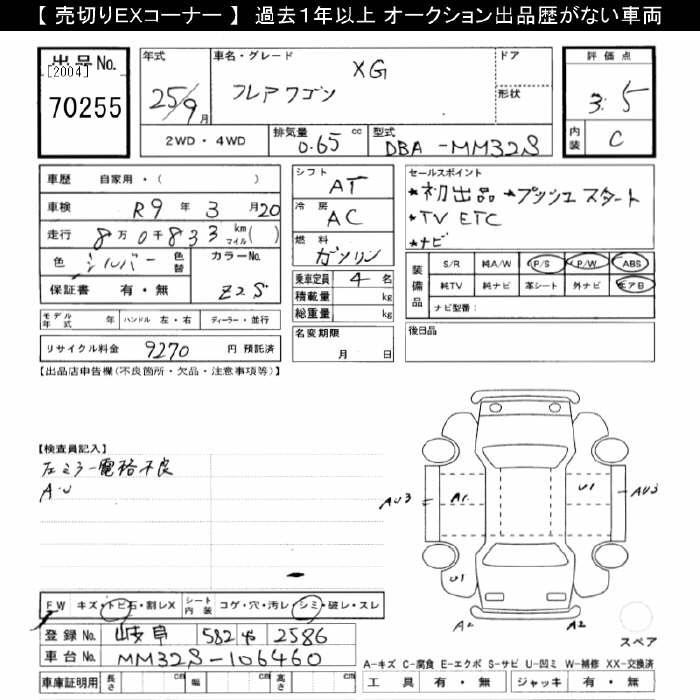 【 売切りEXコーナー 】 過去１年以上 オークション出品歴がない車両
出品No.
[2004]
70255
年式
25/9月
車名・グレード
XG
フレアワゴン
ドア
形状
評価点
3.5
内装
C
2WD・4WD
排気量 0.65 cc
型式 DBA-MM32S
車歴 自家用・( )
車検 R9年 3月20
走行 8万0千833 km マイル( )
色 シルバー 色替
カラーNo. Z2S
保証書 有・無
シフト AT
冷房 AC
燃料 ガソリン
乗車定員 4名
積載量 kg
総重量 kg
名変期限
月 日
セールスポイント
★初出品 ★プッシュスタート
★TV ETC
★ナビ
装備品
S/R 純A/W P/S P/W ABS
純TV 純ナビ 革シート 外ナビ エアB
ナビ型番:
後日品
モデル年式 年 ハンドル 左・右 ディーラー・並行
リサイクル料金 9270 円 預託済
【出品店申告欄(不良箇所・欠品・注意事項等)】
【検査員記入】
左ミラー電格不良
A・U
AU3 A1 U1 AU3
U1
A2 A2
スペア
FW キズ・トビ石・割レX シート内装 コゲ・穴・汚レ シミ・破レ・スレ
登録No. 岐阜 582 や 2586
車台No. MM32S-106460
車庫証明用 長さ cm 幅 cm 高さ cm
A-キズ C-腐食 E-エクボ S-サビ U-凹ミ W-補修 XX-交換済
工具 有・無 ジャッキ 有・無